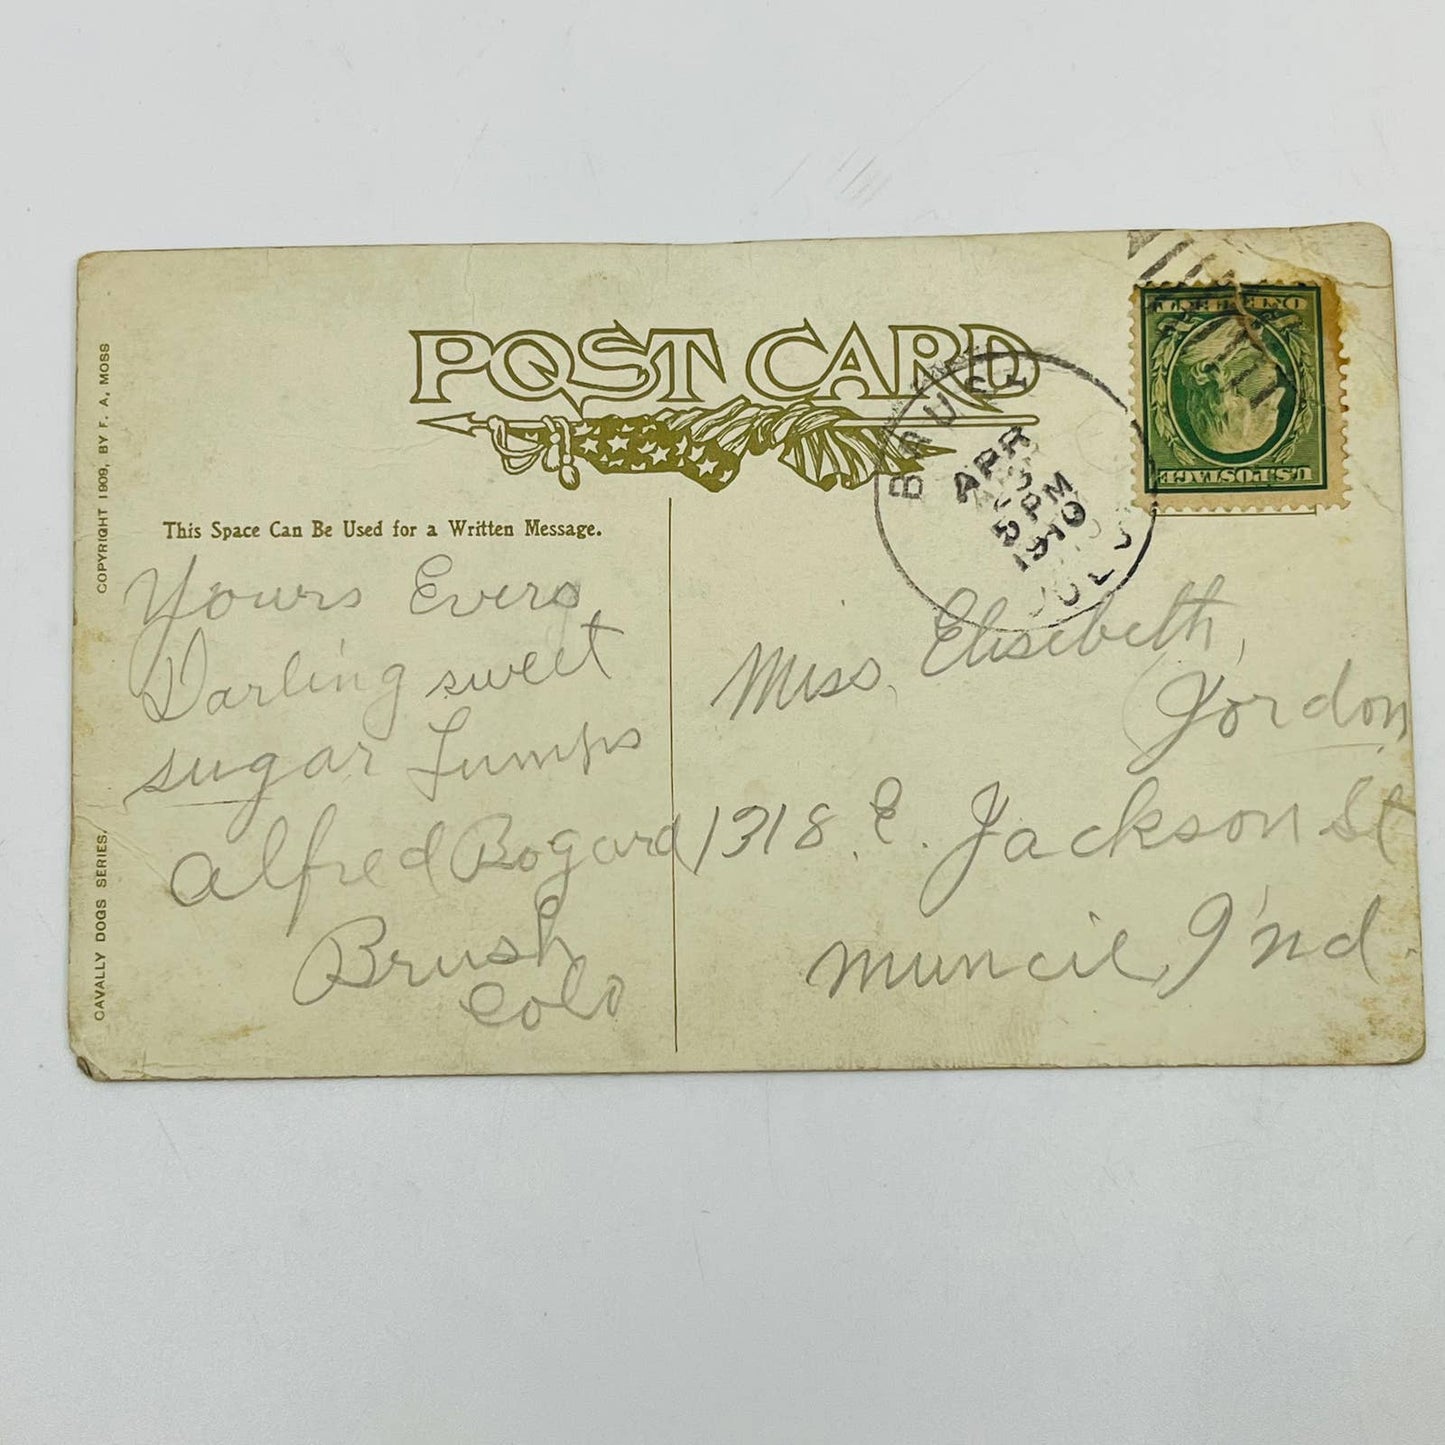 POST CARD
COPYRIGHT 1909, BY F. A. MOSS
CAVALLY DOGS SERIES.
This Space Can Be Used for a Written Message.
Yours Evers
Darling sweet
sugar Lumps
Alfred Bogard
Brush
Colo
BRUSH
APR
5 PM
1910
COLO
ONE CENT
U.S. POSTAGE
Miss, Elisebeth,
Jordon
1318. E. Jackson St
Muncie, Ind.